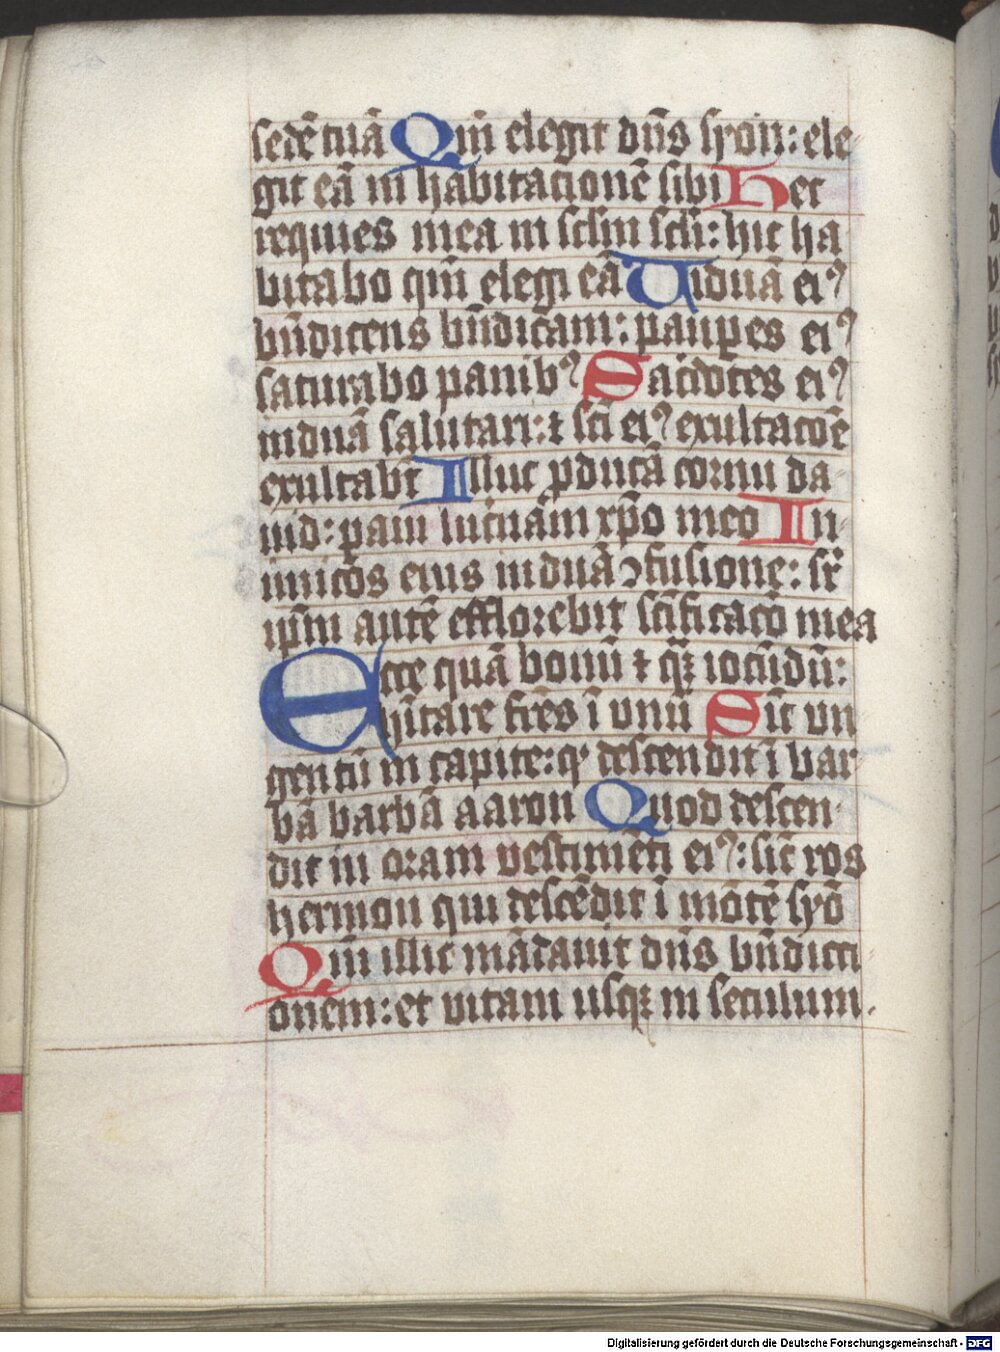 sedē tuā Qm̄ elegit dn̄s syon: ele-
git eā in habitacionē sibi Hec
requies mea in sclm̄ scl̄i: hic ha
bitabo qm̄ elegi eā Uiduā eiꝰ
bn̄dicens bn̄dicam: paupes eiꝰ
saturabo panibꝰ Sac̄dotes eiꝰ
induā salutari: ⁊ sc̄i eiꝰ exultacōe
exultabt̄ Illuc ꝓducā cornu da-
uid: paui lucnām xp̄o meo In-
imicos eius induā ꝯfusione: sr̄
ip̄m autē efflorebit sc̄ificacō mea
Ecce quā bonū ⁊ qꝫ iocūdū:
hītare fr̄es ī unū Sic̄ vn
gentū in capite: qꝰ descendit ī bar-
bā barbā aaron Quod descen-
dit in oram vestimēti eiꝰ: sic̄ ros
hermon qui descēdit ī mōtē syō
Qm̄ illic mādauit dn̄s bn̄dicti-
onem: et vitam usqꝫ in seculum.
Digitalisierung gefördert durch die Deutsche Forschungsgemeinschaft - DFG